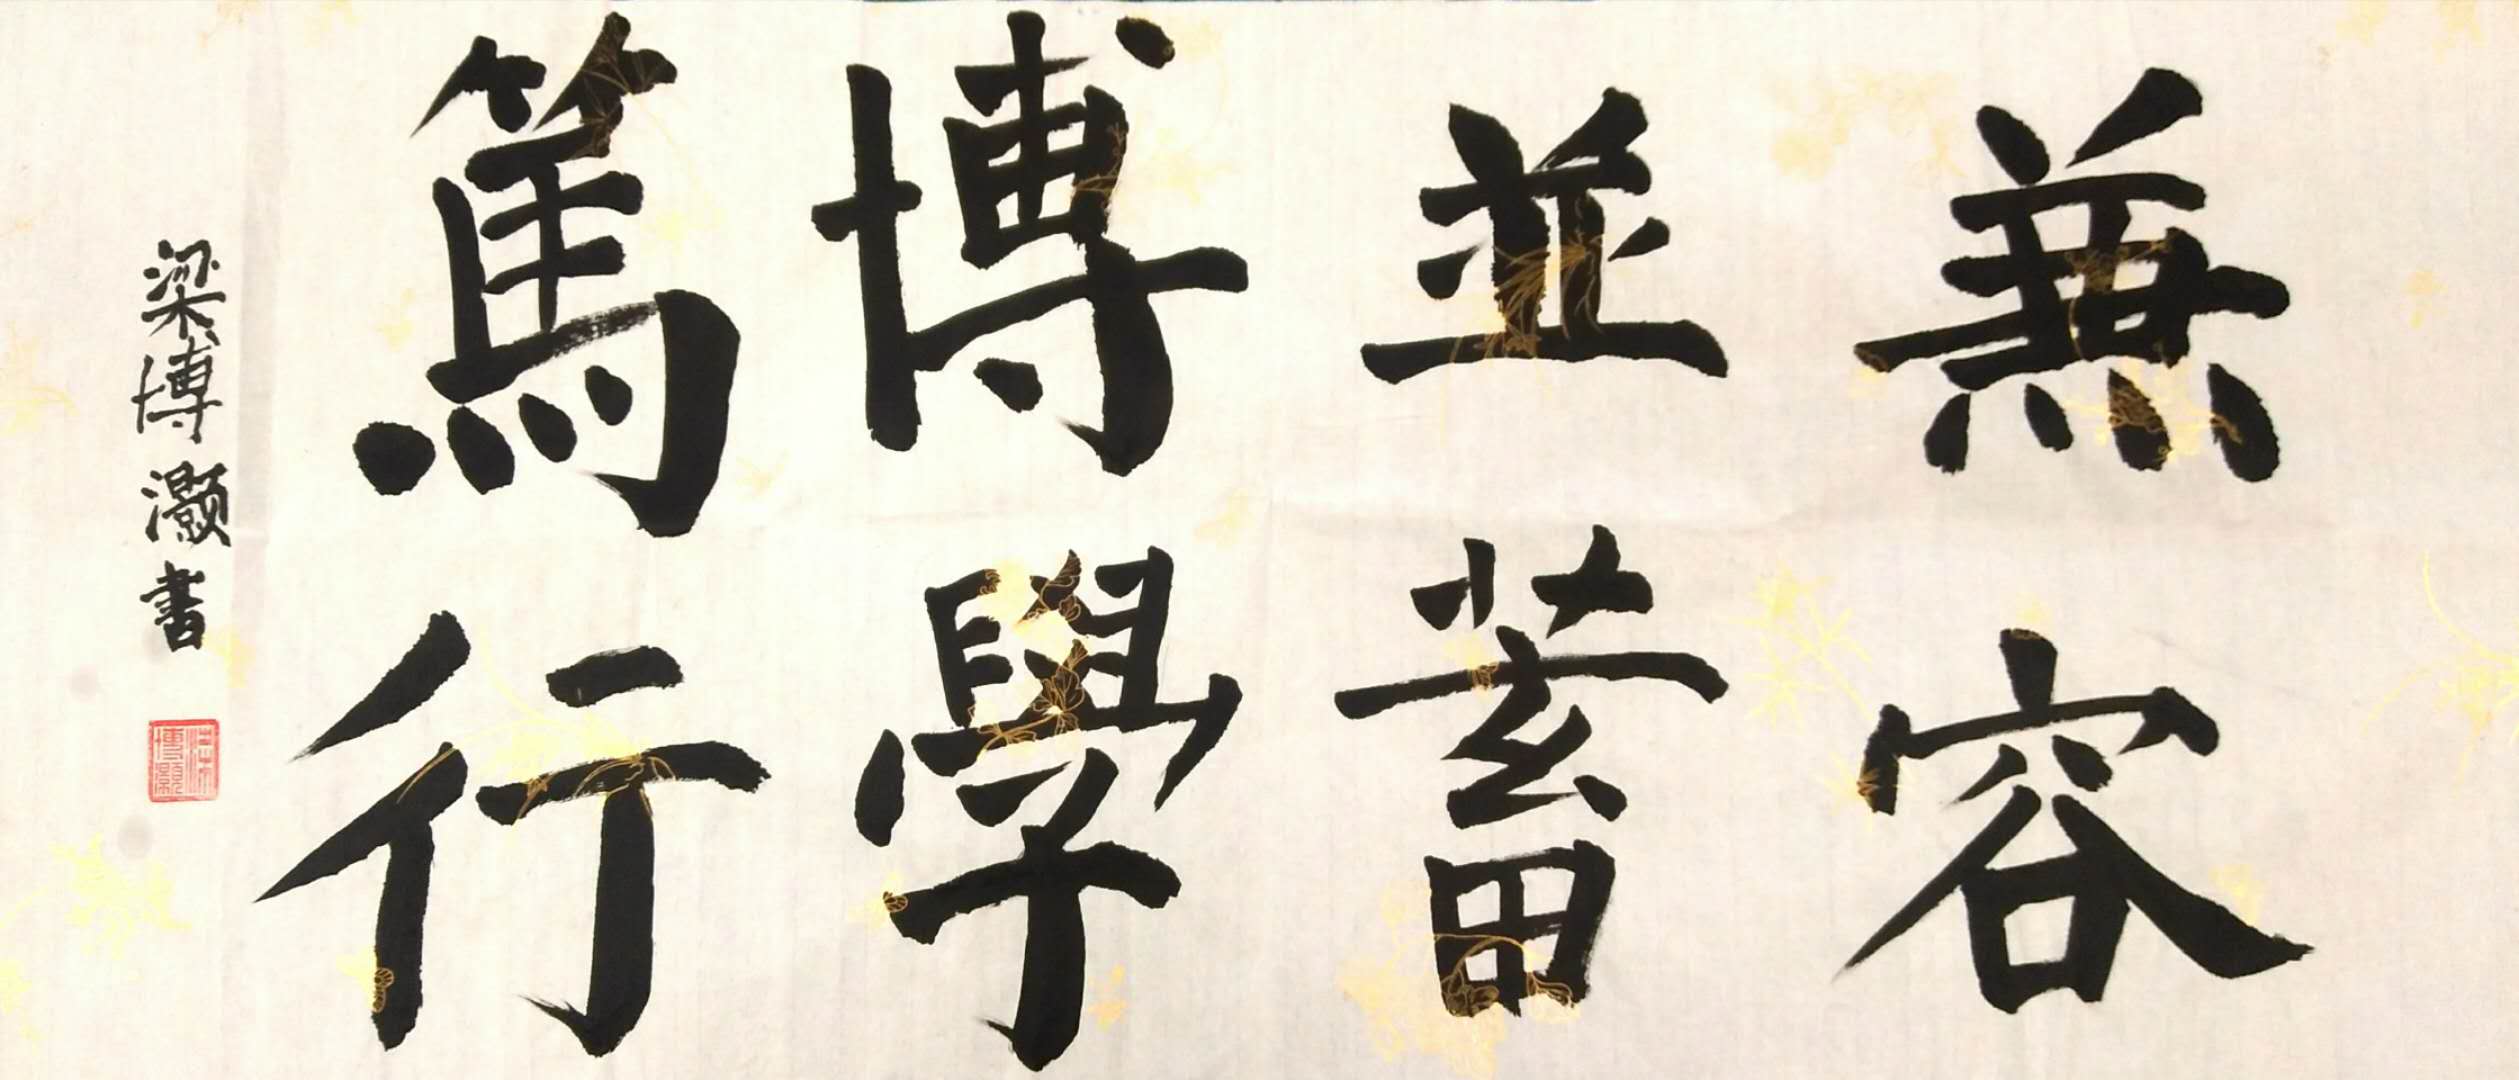 兼容
並蓄
博學
篤行
梁博灝書
梁博灝